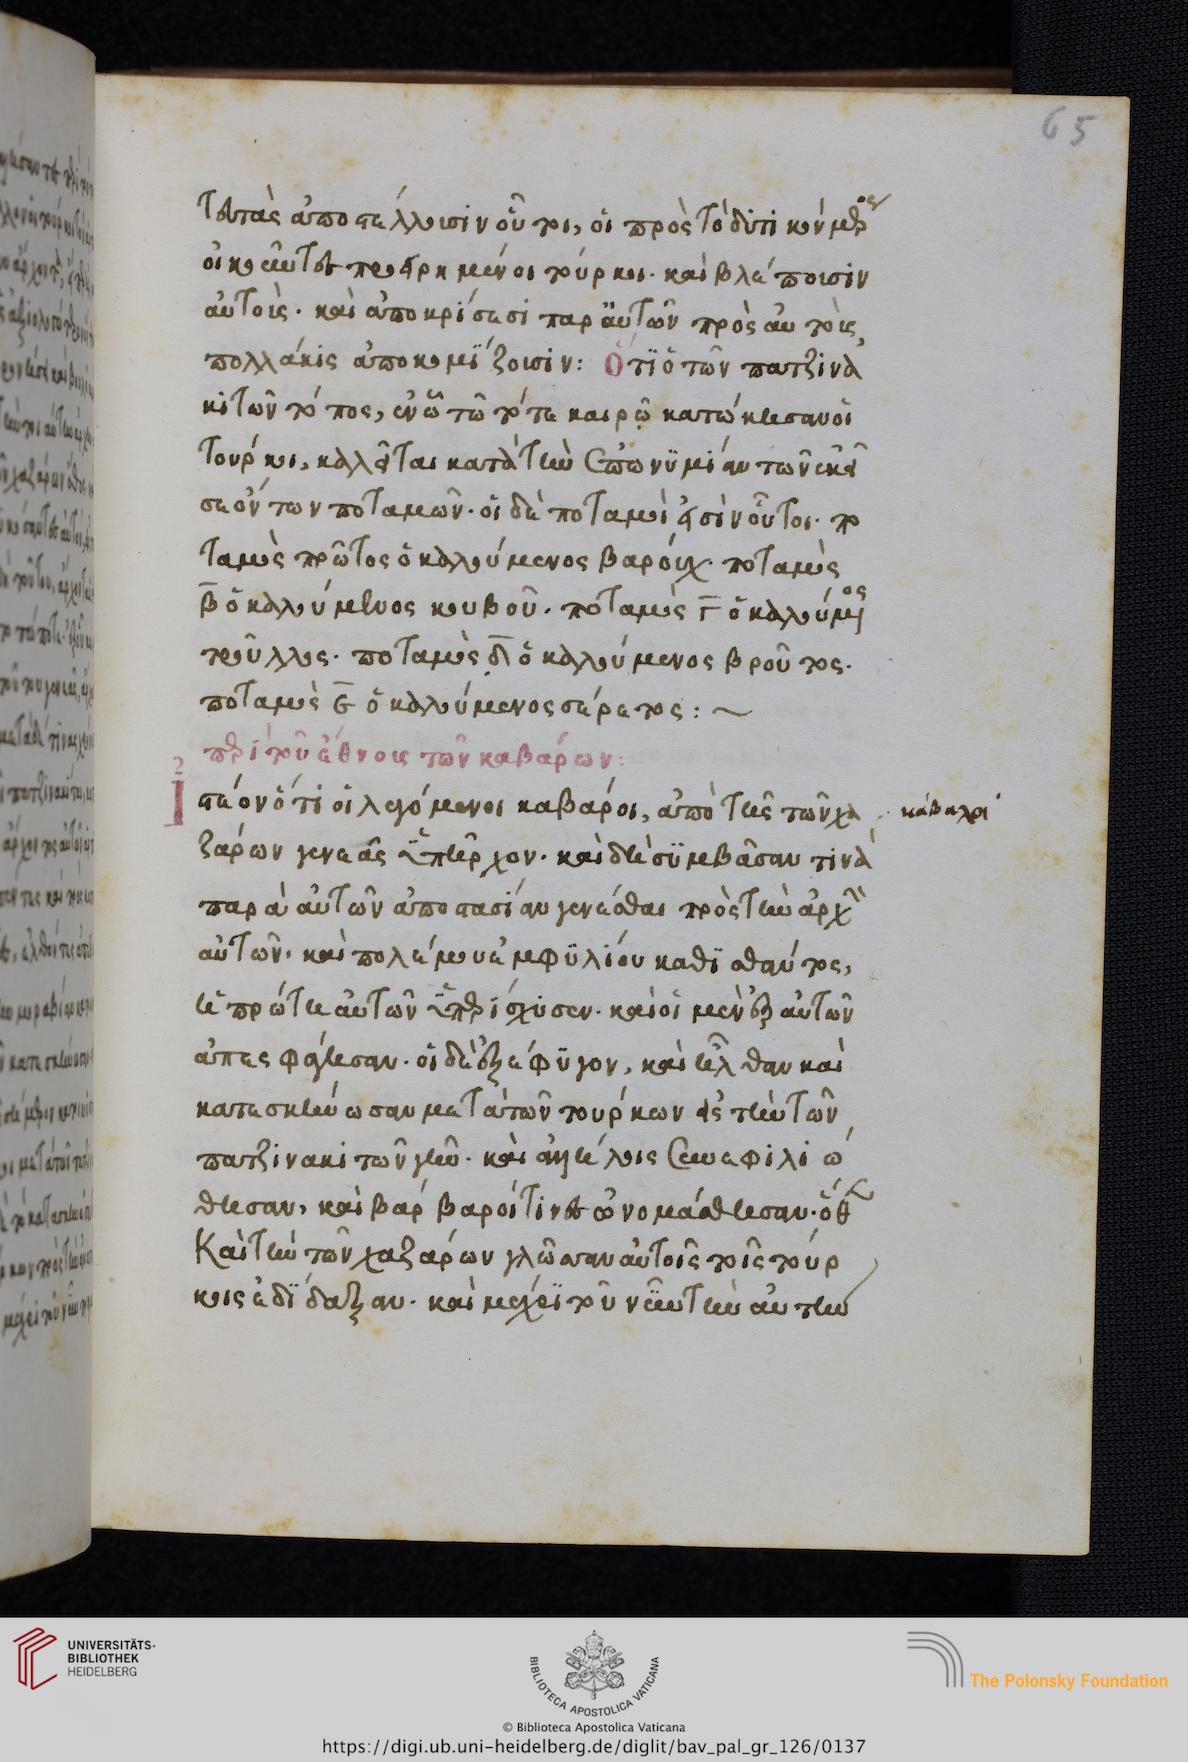 65
τουτας ἀποστέλλουσιν οὗτοι, οἱ πρὸς τὸ δυτικὸν μέρος
οἰκοῦντες προειρημένοι τοῦρκοι. καὶ βλέπουσιν
αὐτούς. καὶ ἀποκρίσεσι παρ' αὐτῶν πρὸς αὐτοὺς
πολλάκις ἀποκομίζουσιν: Ὅτι ὁ τῶν πατζινα
κιτῶν τόπος, ἐν ᾧ τῷ τότε καιρῷ κατώκησαν οἱ
τοῦρκοι, καλεῖται κατὰ τὴν ἐπωνυμίαν τῶν ἐκεῖ
σε ὄντων ποταμῶν. οἱ δὲ ποταμοὶ εἰσὶν οὗτοι. πο
ταμὸς πρῶτος ὁ καλούμενος βαρούχ. ποταμὸς
β̅ ὁ καλούμενος κουβοῦ. ποταμὸς γ̅ ὁ καλούμενος
τροῦλλος. ποταμὸς δ̅ ὁ καλούμενος βροῦτος.
ποταμὸς ε̅ ὁ καλούμενος σέρετος: ~
περὶ τοῦ ἔθνους τῶν καβάρων:
Ἰστέον ὅτι οἱ λεγόμενοι καβάροι, ἀπὸ τῆς τῶν χα
κάβαροι
ζάρων γενεᾶς ὑπῆρχον. καὶ δὴ συμβᾶσαν τινὰ
παρὰ αὐτῶν ἀποστασίαν γενέσθαι πρὸς τὴν ἀρχὴν
αὐτῶν. καὶ πολέμου ἐμφυλίου καθισθάντος,
ἡ πρώτη αὐτῶν ὑπερίσχυσεν. καὶ οἱ μὲν ἐξ αὐτῶν
ἀπεσφάγησαν. οἱ δὲ ἐξέφυγον, καὶ ἦλθαν καὶ
κατεσκήνωσαν μετὰ τῶν τούρκων εἰς τὴν τῶν
πατζινακιτῶν γῆν. καὶ ἀλλήλοις συνεφιλιώ
θησαν, καὶ βάρ βαροί τινες ὠνομάσθησαν. ὅθεν
Καὶ τὴν τῶν χαζάρων γλῶσσαν αὐτοῖς τοῖς τούρ
κοις ἐδίδαξαν. καὶ μέχρι τοῦ νῦν τὴν αὐτὴν
UNIVERSITÄTS-
BIBLIOTHEK
HEIDELBERG
BIBLIOTECA APOSTOLICA VATICANA
© Biblioteca Apostolica Vaticana
The Polonsky Foundation
https://digi.ub.uni-heidelberg.de/diglit/bav_pal_gr_126/0137